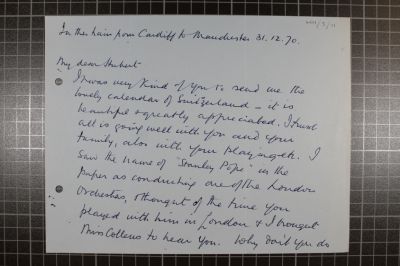 In the train from Cardiff to Manchester 31.12.70.
My dear Hubert
It was very kind of you to send me the
lovely calendar of Switzerland - it is
beautiful & greatly appreciated. I trust
all is going well with you and your
family, also with your playing etc. I
saw the name of "Stanley Pope" in the
paper as conducting one of the London
Orchestras, & thought of the time you
played with him in London & I brought
Miss to hear you. Why don't you do